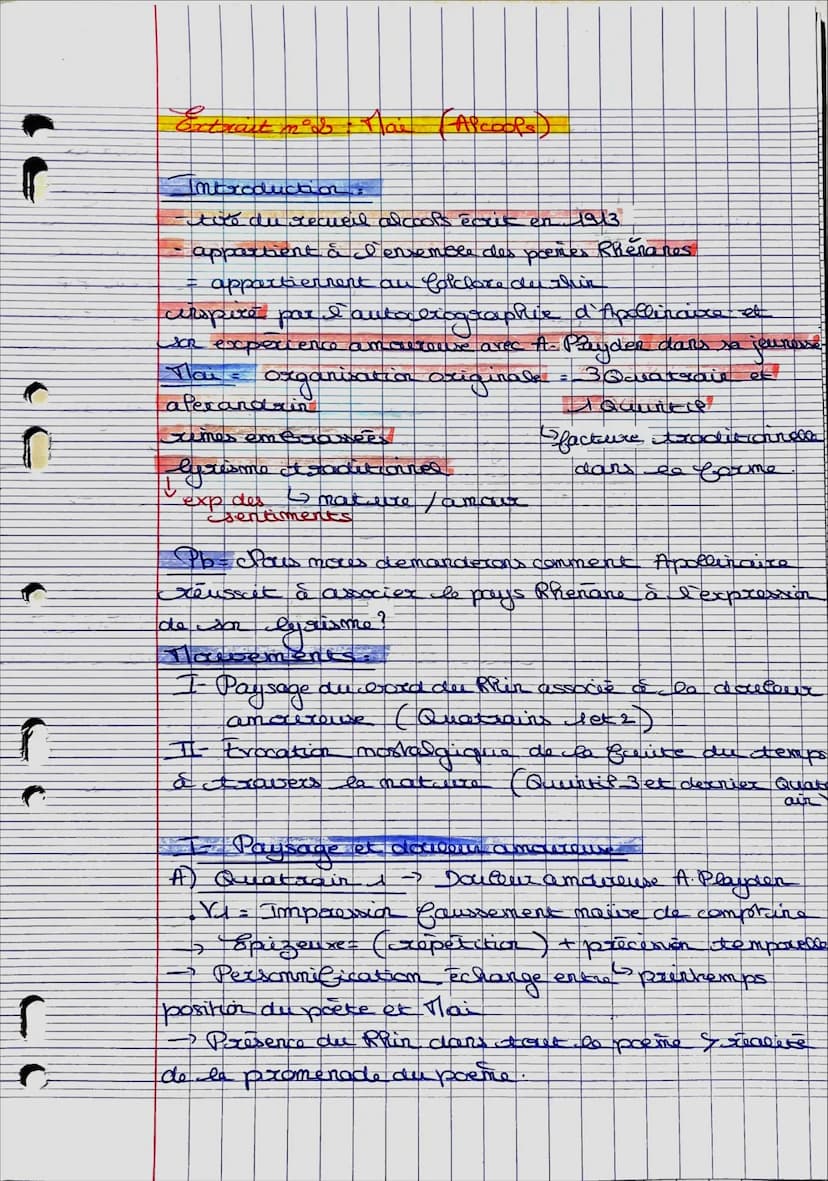 Extrait n°2 : Mai (Alcools)
Introduction :
- tiré du recueil alcools écrit en 1913
- appartient à l'ensemble des poèmes Rhénanes
= appartiennent au folclore du rhin
inspiré par l'autobiographie d'Apollinaire et
son expérience amoureuse avec A. Playden dans sa jeunesse
Mai = organisation originale = 3 Quatrain et
alexandrin 1 Quintil
rimes embrassées ↳ facture traditionnelle
lyrisme traditionnel dans la forme.
↓ exp des ↳ nature / amour
sentiments
Pb = Nous nous demanderons comment Apollinaire
réussit à associer le pays Rhénane à l'expression
de son lyrisme ?
Mouvements :
I- Paysage du bord du Rhin associé à la douleur
amoureuse (Quatrains 1 et 2)
II- Evocation nostalgique de la fuite du temps
à travers la nature (Quintil 3 et dernier Quatr
ain)
I- Paysage et douleur amoureuse
A) Quatrain 1 → Douleur amoureuse A. Playden
. V1 = Impression faussement naïve de comptine
→ Epizeuxe = (répétition) + précision temporelle
→ Personnification échange entre ↳ printemps
position du poète et Mai
→ Présence du Rhin dans tout le poème ↳ réalité
de la promenade du poème.